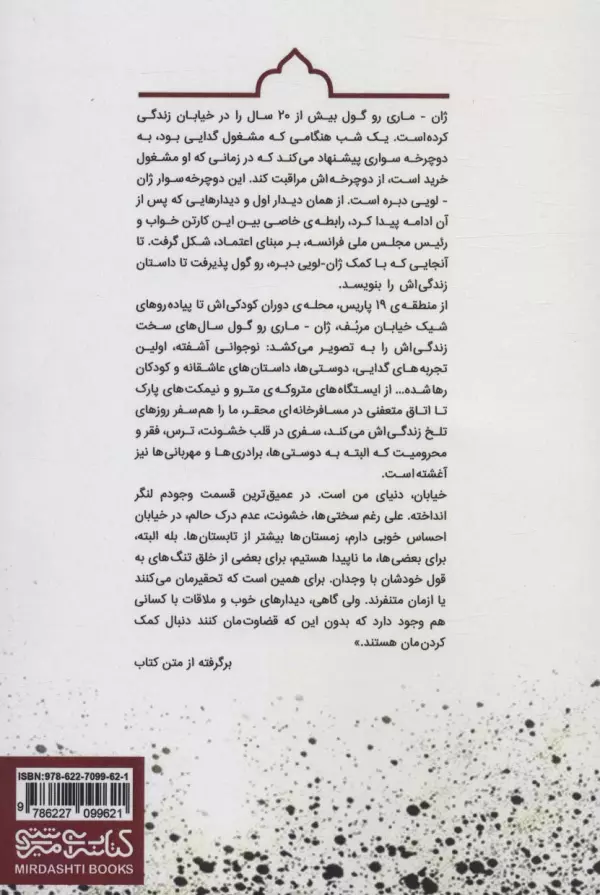 ژان - ماری رو گول بیش از ۲۰ سال را در خیابان زندگی
کرده‌است. یک شب هنگامی که مشغول گدایی بود، به
دوچرخه سواری پیشنهاد می‌کند که در زمانی که او مشغول
خرید است، از دوچرخه‌اش مراقبت کند. این دوچرخه‌سوار ژان
- لویی دبره است. از همان دیدار اول و دیدارهایی که پس از
آن ادامه پیدا کرد، رابطه‌ی خاصی بین این کارتن خواب و
رئیس مجلس ملی فرانسه، بر مبنای اعتماد، شکل گرفت. تا
آنجایی که با کمک ژان-لویی دبره، رو گول پذیرفت تا داستان
زندگی‌اش را بنویسد.
از منطقه‌ی ۱۹ پاریس، محله‌ی دوران کودکی‌اش تا پیاده‌روهای
شیک خیابان مربُف، ژان - ماری رو گول سال‌های سخت
زندگی‌اش را به تصویر می‌کشد: نوجوانی آشفته، اولین
تجربه‌های گدایی، دوستی‌ها، داستان‌های عاشقانه و کودکان
رهاشده... از ایستگاه‌های متروکه‌ی مترو و نیمکت‌های پارک
تا اتاق متعفنی در مسافرخانه‌ای محقر، ما را هم‌سفر روزهای
تلخ زندگی‌اش می‌کند، سفری در قلب خشونت، ترس، فقر و
محرومیت که البته به دوستی‌ها، برادری‌ها و مهربانی‌ها نیز
آغشته‌است.
خیابان، دنیای من است. در عمیق‌ترین قسمت وجودم لنگر
انداخته. علی رغم سختی‌ها، خشونت، عدم درک حالم، در خیابان
احساس خوبی دارم، زمستان‌ها بیشتر از تابستان‌ها. بله البته،
برای بعضی‌ها، ما ناپیدا هستیم، برای بعضی از خلق تنگ‌های به
قول خودشان با وجدان. برای همین است که تحقیرمان می‌کنند
یا ازمان متنفرند. ولی گاهی، دیدارهای خوب و ملاقات با کسانی
هم وجود دارد که بدون این که قضاوت‌مان کنند دنبال کمک
کردن‌مان هستند.»
برگرفته از متن کتاب
ISBN: 978-622-7099-62-1
9 786227 099621
کتابسرای میردشتی
MIRDASHTI BOOKS